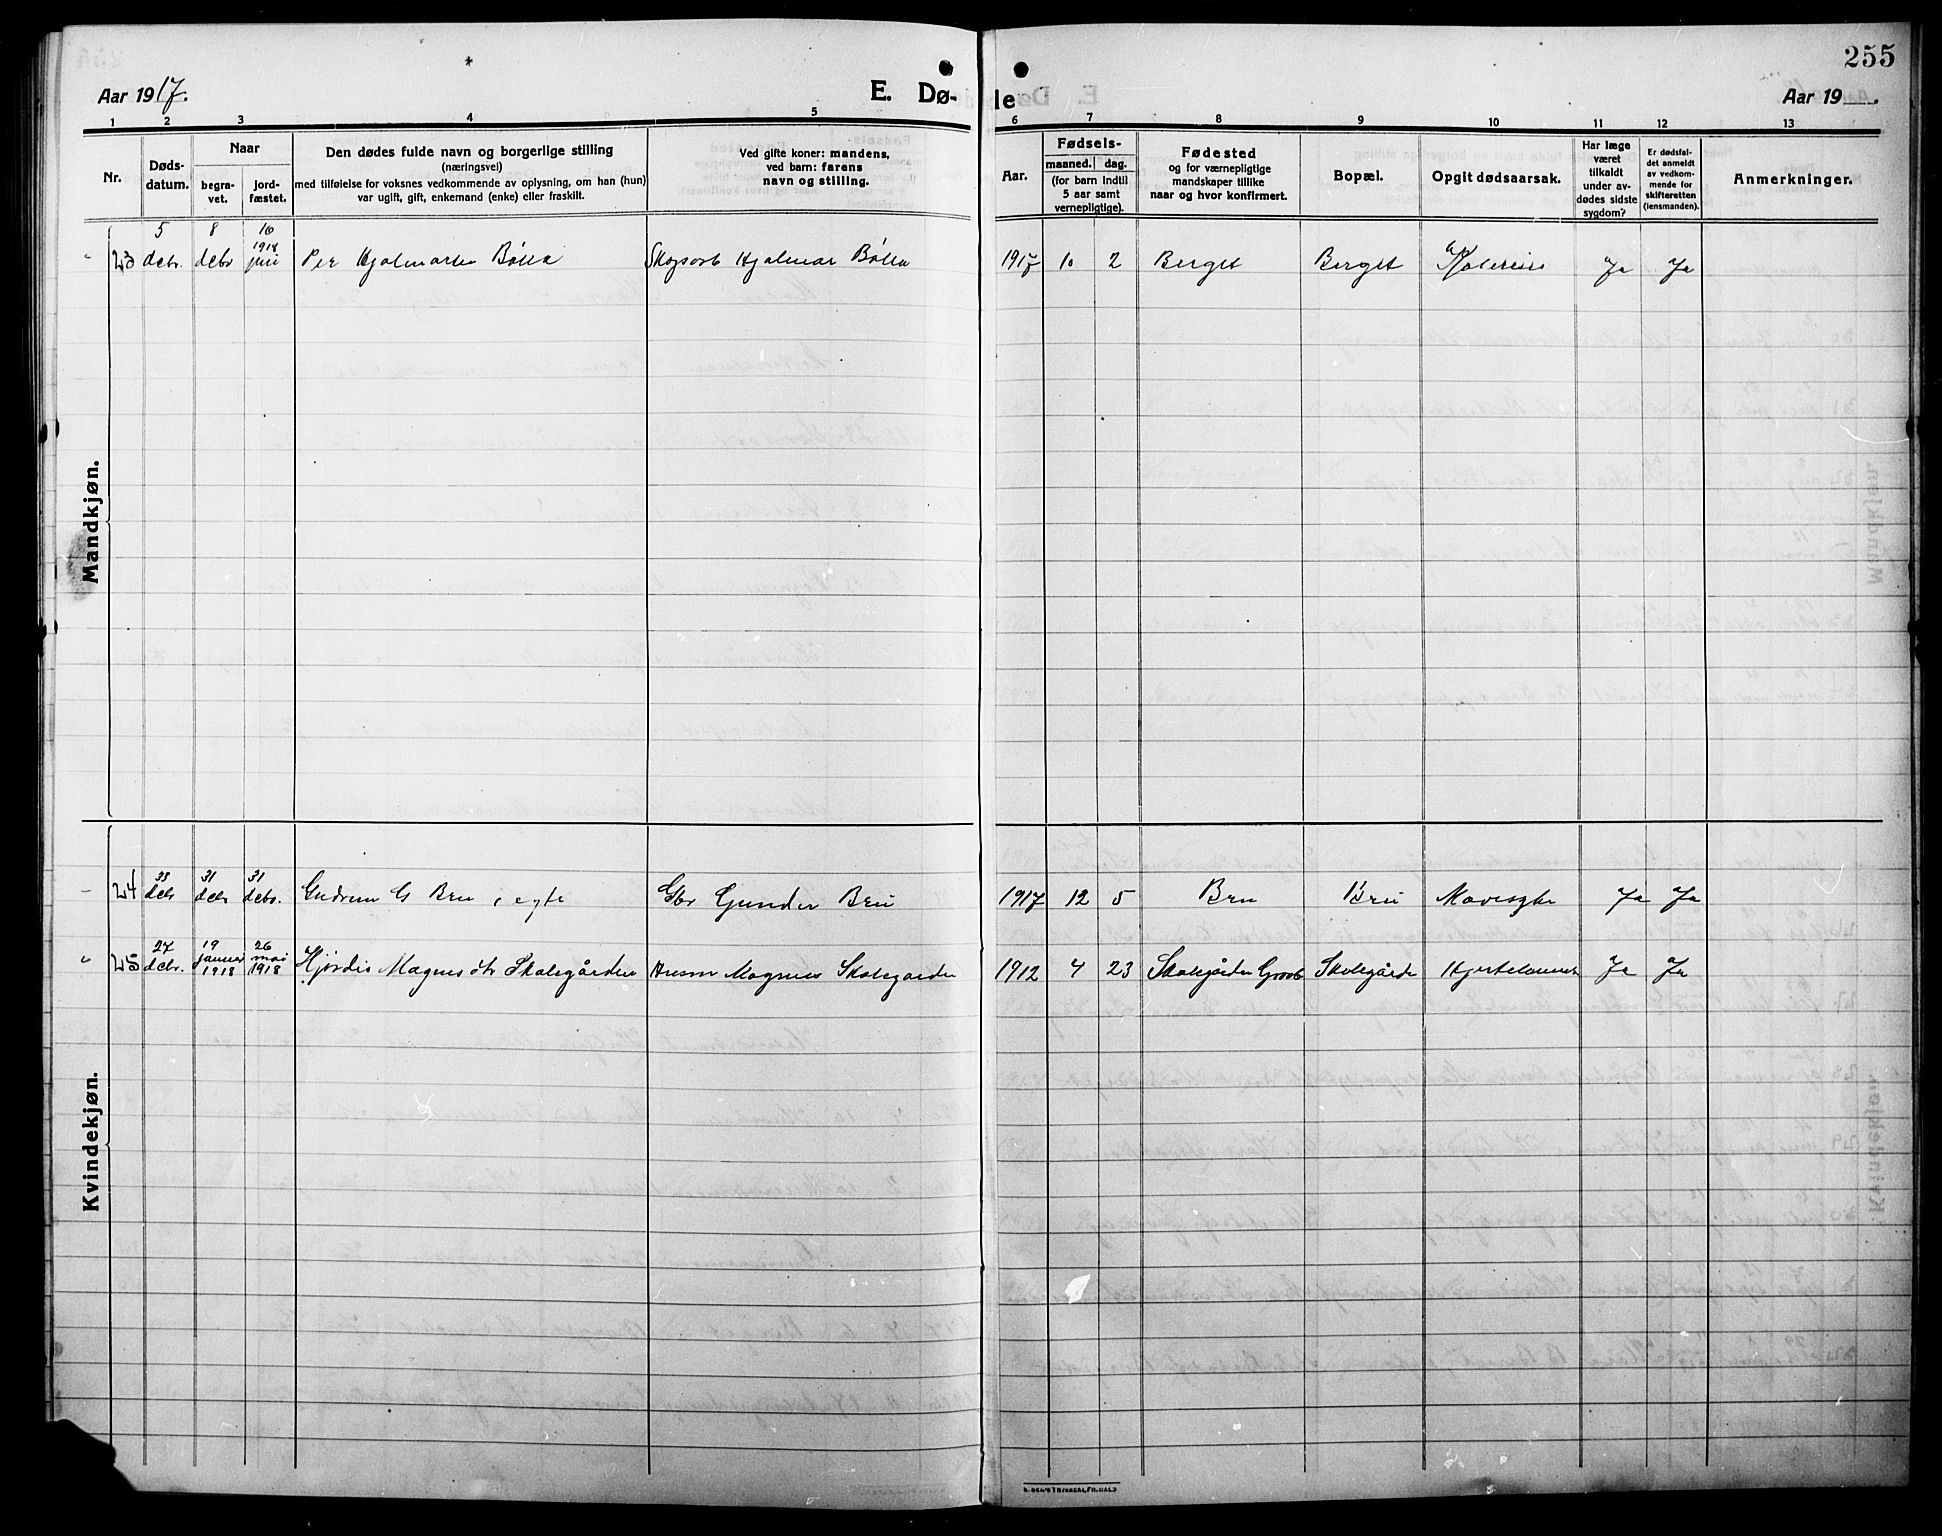 255
Aar 1917.
E. Dø-
le
Aar 19 .
1 2 3 4 5 6 7 8 9 10 11 12 13
Nr.
Døds-
datum.
Naar
begra-
vet.
jord-
fæstet.
Den dødes fulde navn og borgerlige stilling
(næringsvei)
med tilføielse for voksnes vedkommende av oplysning, om han (hun)
var ugift, gift, enkemand (enke) eller fraskilt.
Ved gifte koner: mandens,
ved barn: farens
navn og stilling.
Aar.
Fødsels-
maaned. dag.
(for barn indtil
5 aar samt
vernepligtige).
Fødested
og for værnepligtige
mandskaper tillike
naar og hvor konfirmert.
Bopæl.
Opgit dødsaarsak.
Har læge
været
tilkaldt
under av-
dødes sidste
sygdom?
Er dødsfal-
det anmeldt
av vedkom-
mende for
skifteretten
(lensmanden).
Anmerkninger.
Mandkjøn.
5 8 16
1918
23 debr. debr juni Per Hjalmarsen Bølla Hjalmar Bølla 1917 10 2 Berget Berget Ja Ja
Kvindekjøn.
31 31
24 debr debr debr. Gudrun G Bru, egte Gbr Gunder Bru 1917 12 5 Bru Bru Mavesyke Ja Ja
27 19 26
25 debr. januar mai Hjørdis Magnus dtr Skolegården Magnus Skolegarden 1912 4 23 Skolegården Skolegårde Ja Ja
1918 1918